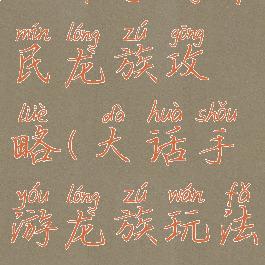 mín lóng zú gōng
民龙族攻
lüè dà huà shǒu
略(大话手
yóu lóng zú wán fǎ
游龙族玩法